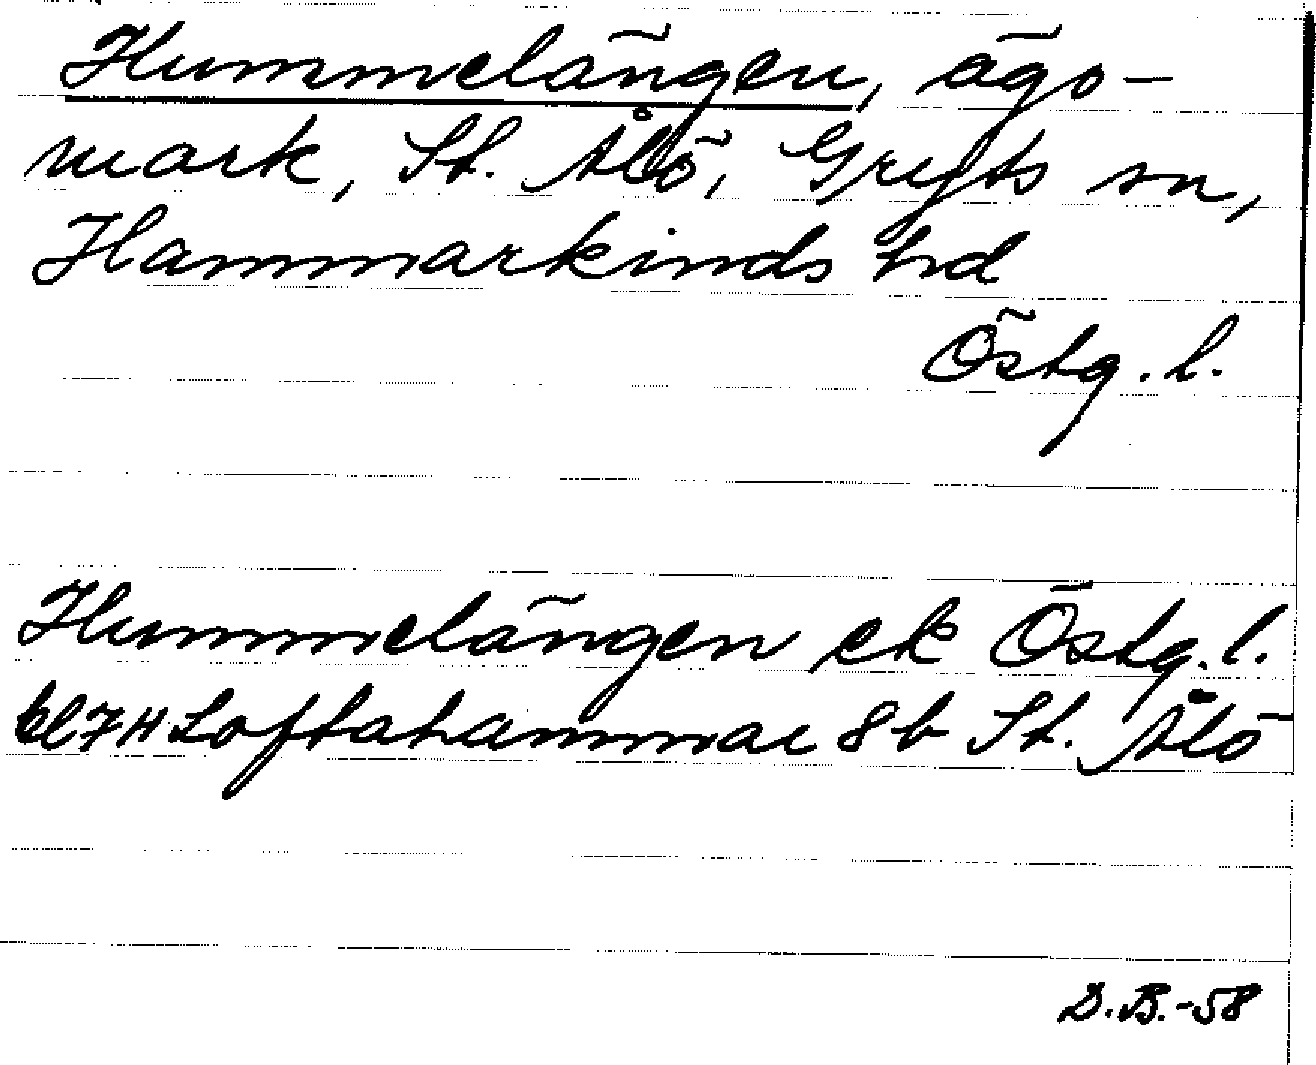 Hummelängen, ägo-
mark, St. Ålö, Gryts sn,
Hammarkinds hd
Östg. l.
Hummelängen ek Östg. l.
bl 7H Loftahammar 8b St. Ålö
D.B.-58